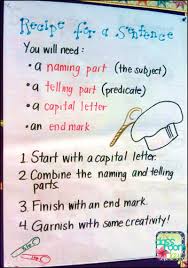 Recipe for a Sentence
You will need:
• a naming part (the subject)
• a telling part (predicate)
• a capital letter
• an end mark
1. Start with a capital letter.
2. Combine the naming and telling
parts.
3. Finish with an end mark.
4. Garnish with some creativity!